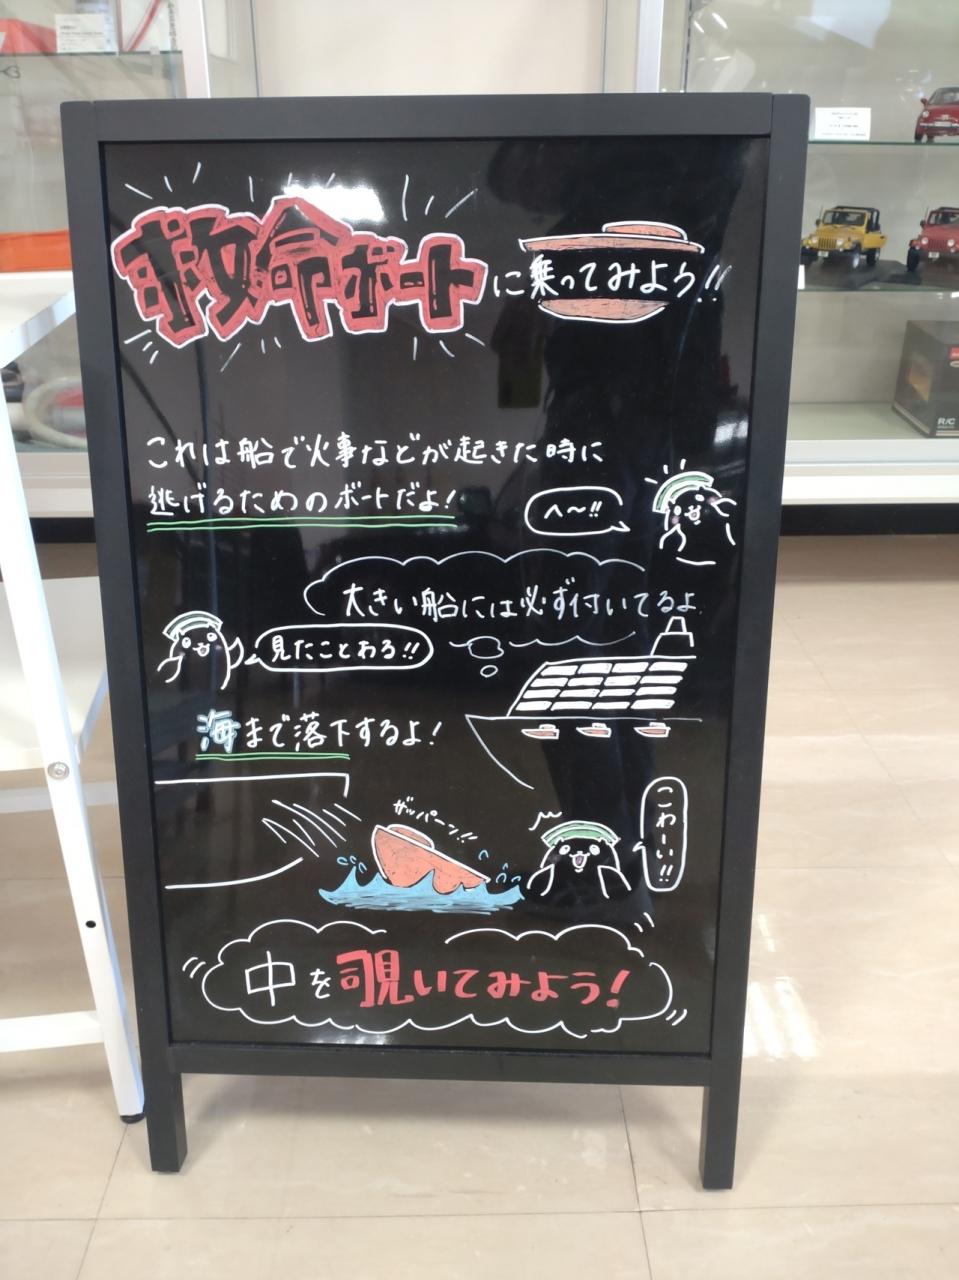 救命ボートに乗ってみよう!!
これは船で火事などが起きた時に
逃げるためのボートだよ!
へ〜!!
大きい船には必ず付いてるよ
見たことわる!!
海まで落下するよ!
ザッパーン!!
こわーい!!
中を覗いてみよう!
R/C